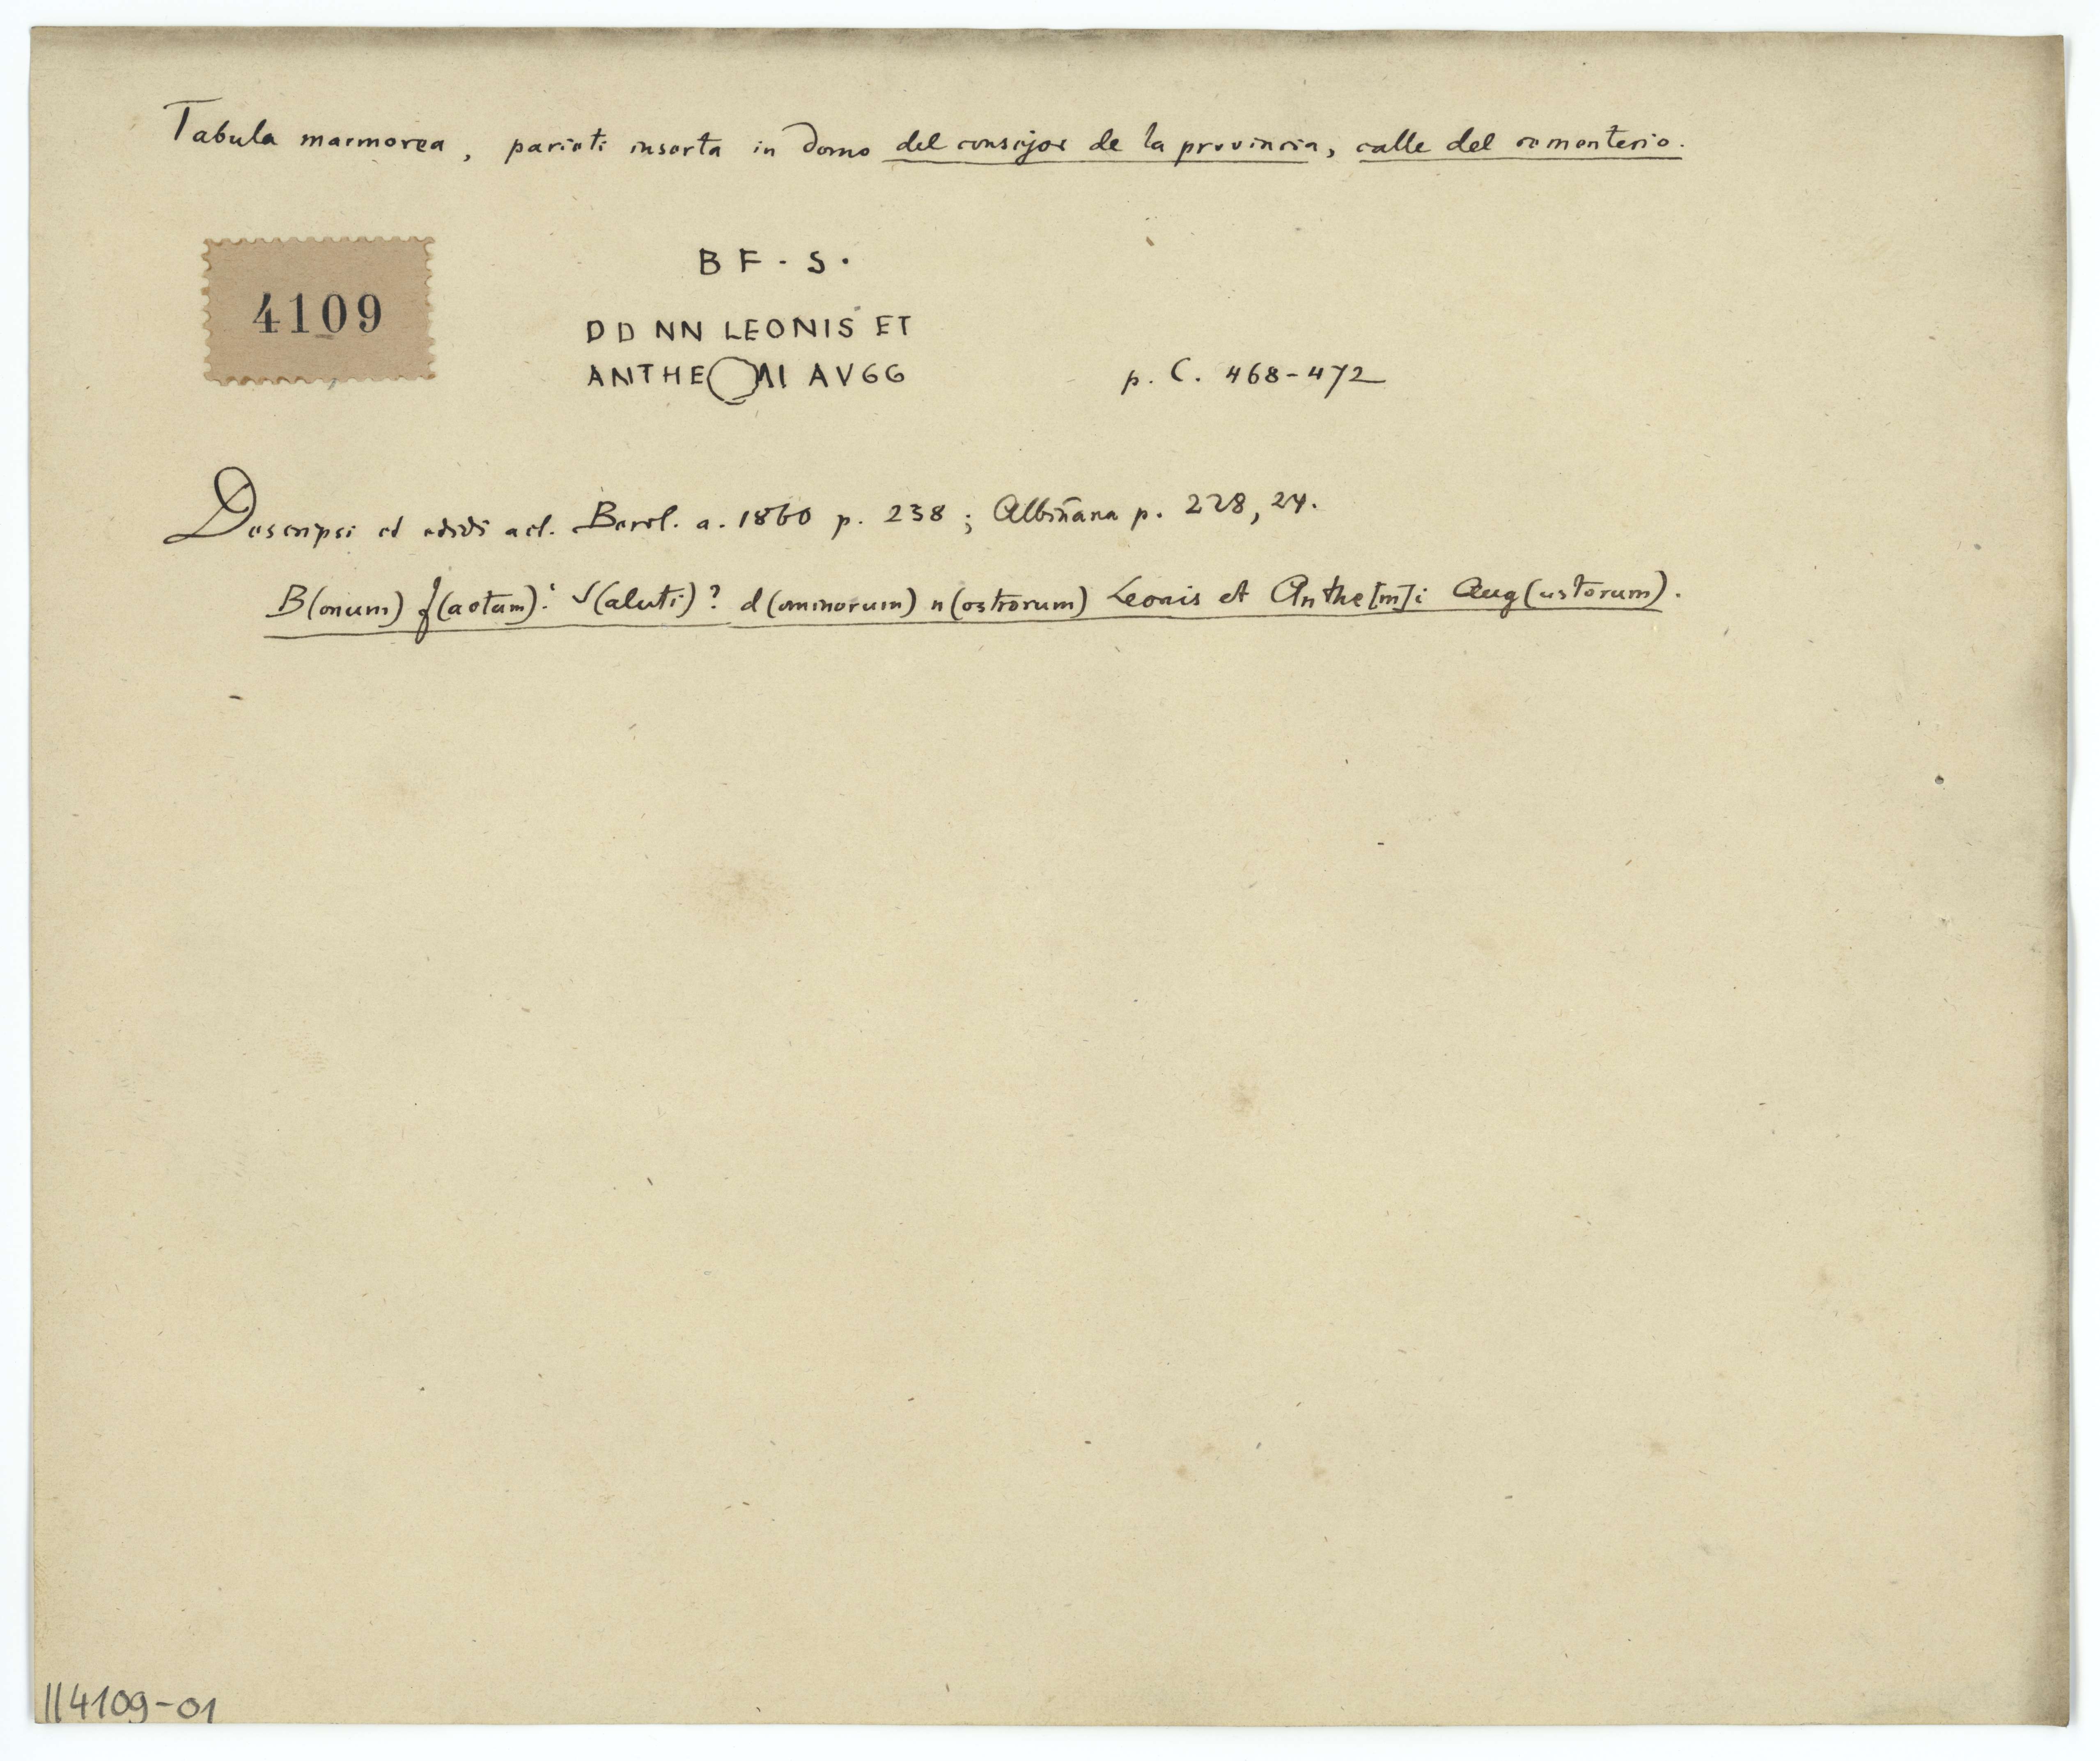 Tabula marmorea, parieti inserta in domo del consejos de la provincia, calle del cementerio.
4109
B F · S ·
D D NN LEONIS ET
ANTHE MI AVGG p. C. 468-472
Descripsi et edidi act. Berol. a. 1860 p. 238; Albiñana p. 228, 24.
B(onum) f(actum): S(aluti)? d(ominorum) n(ostrorum) Leonis et Anthe[m]i Aug(ustorum).
II4109-01